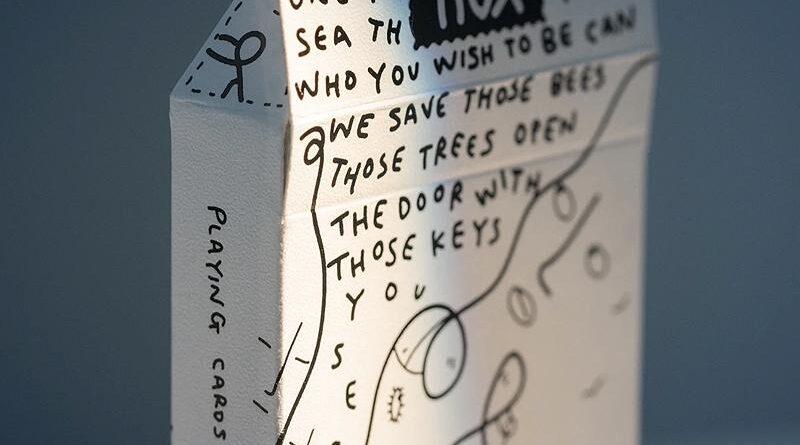 SEA TH
WHO YOU WISH TO BE CAN
WE SAVE THOSE BEES
THOSE TREES OPEN
THE DOOR WITH
THOSE KEYS
YOU
S
E
PLAYING CARDS